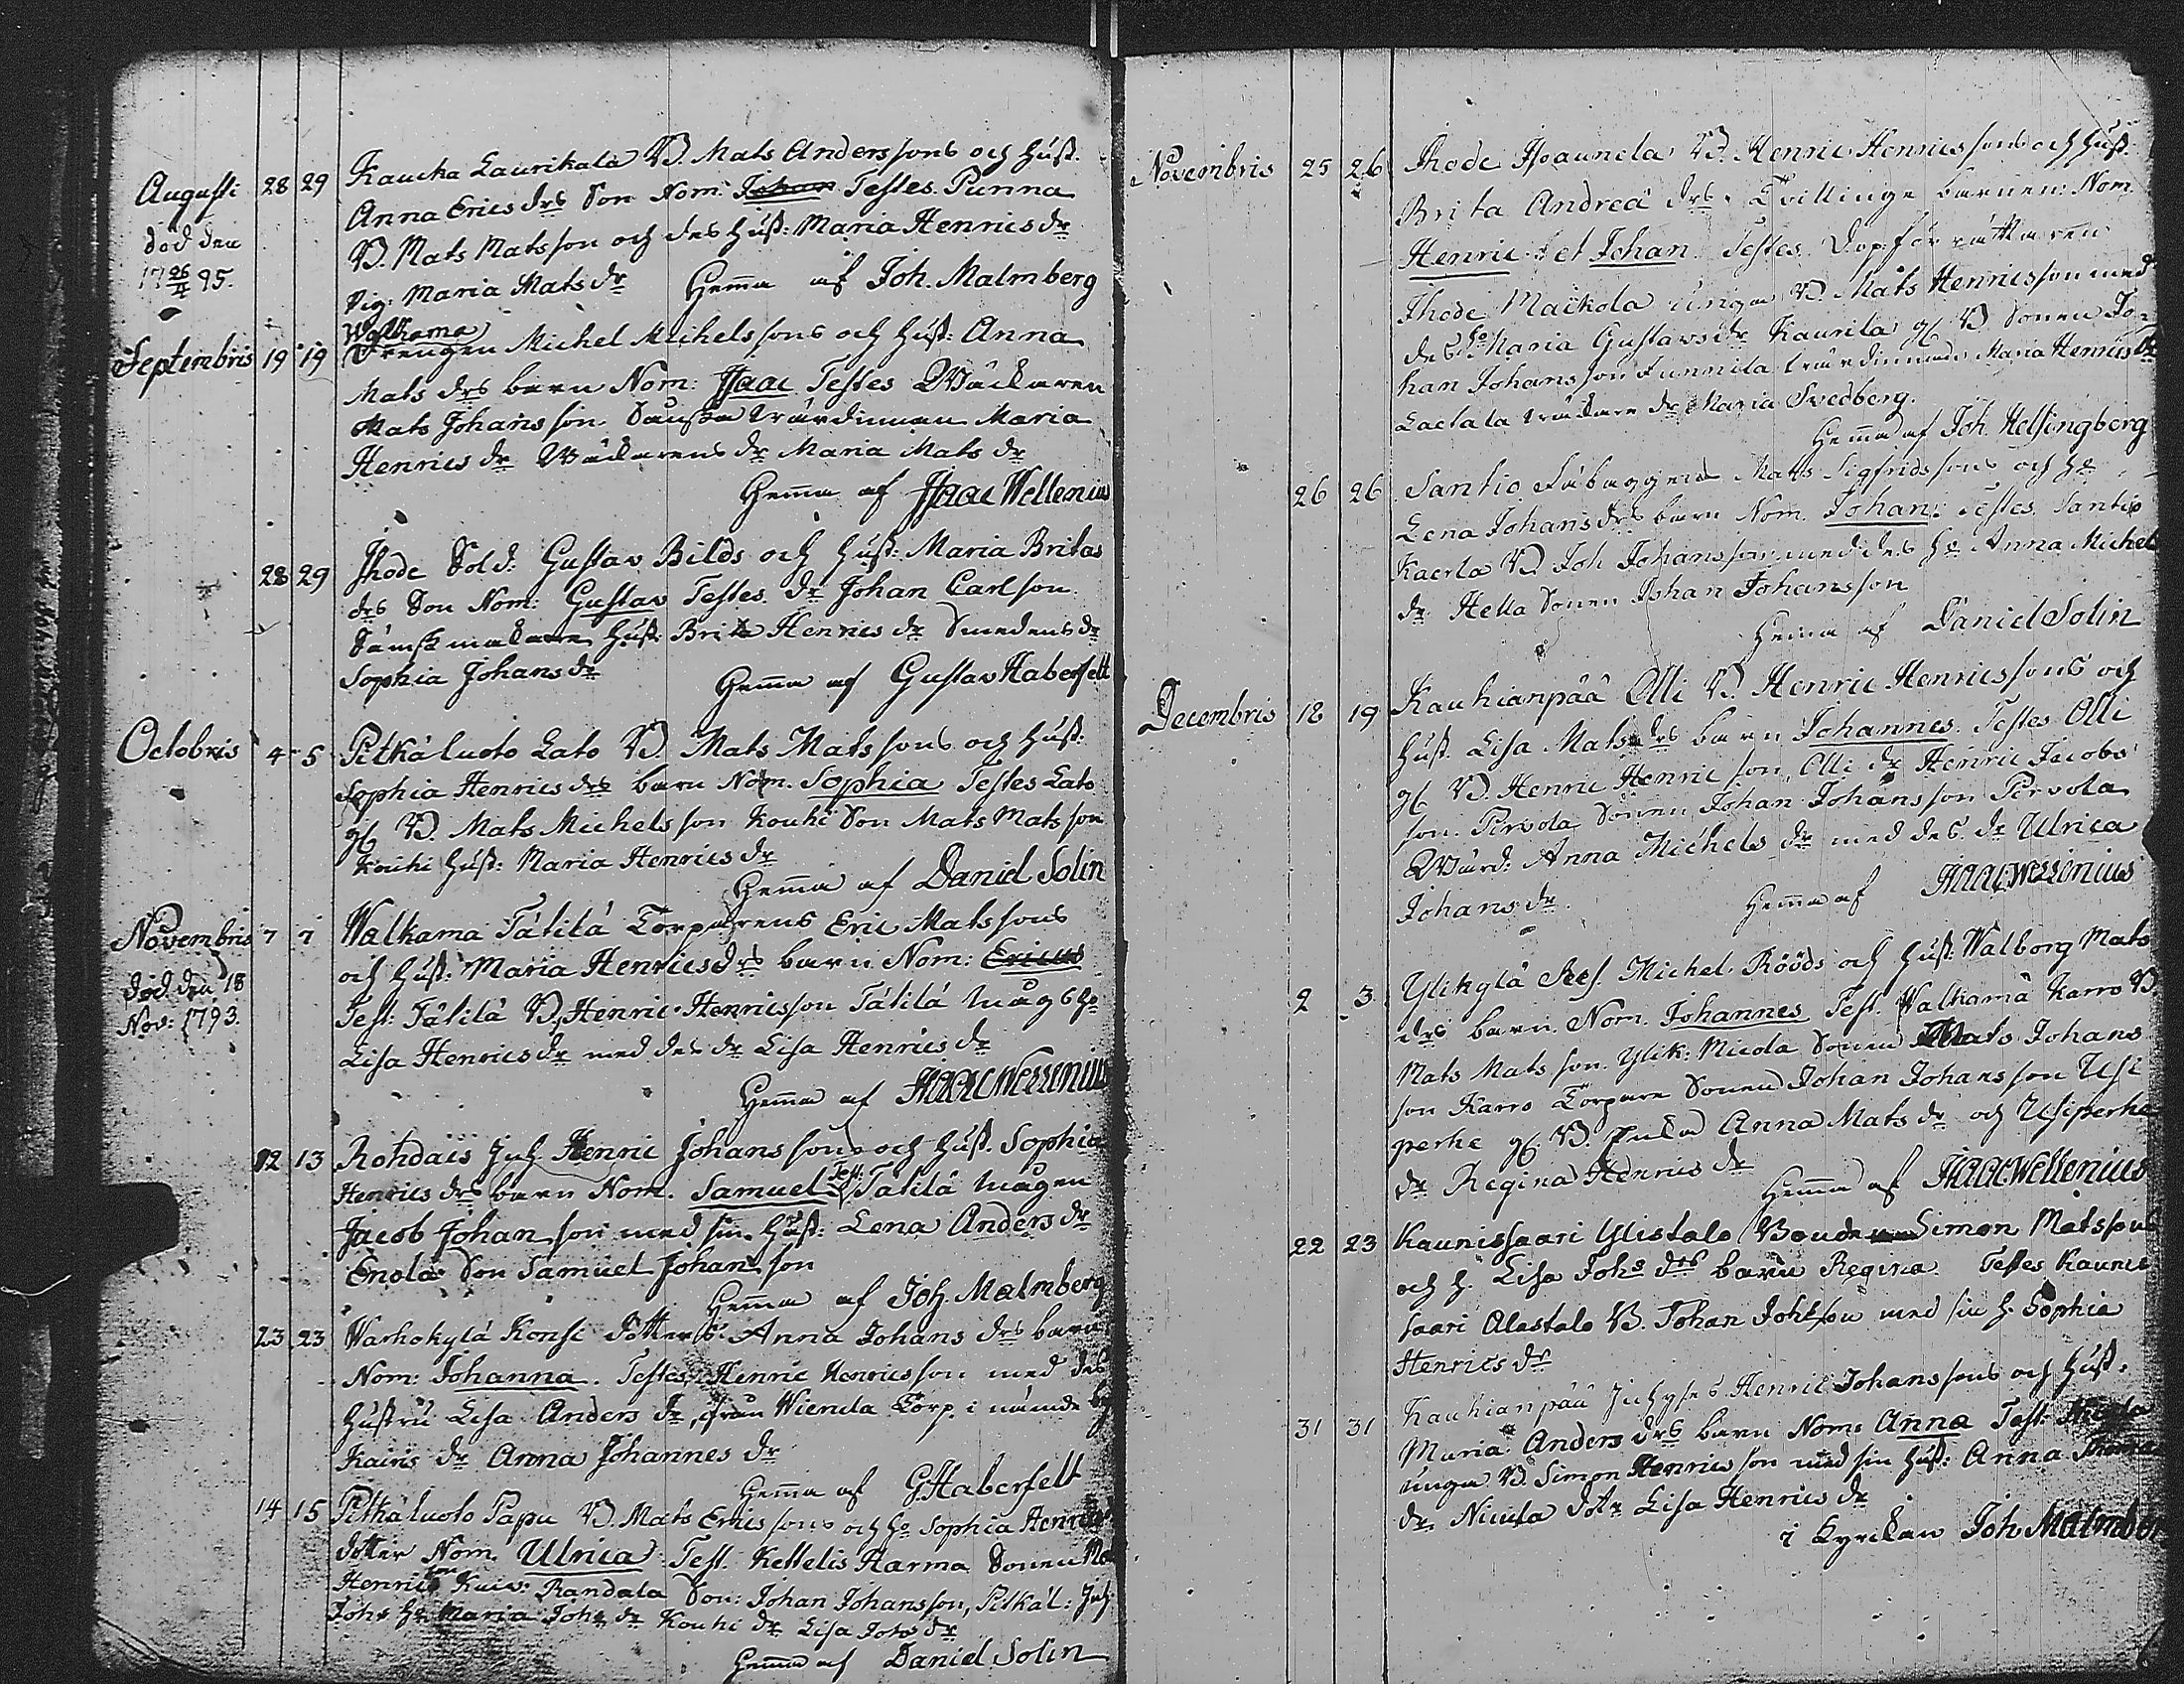 Augusti 28 29 Kaucka Laurikala B. Mats Anderssons och Hust.
Anna Erics drs Son Nom: Johan Testes. Punna
död den
B. Mats Matsson och des Hust: Maria Henrics dr
17 26/4 95.
Pig: Maria Mats dr Hema af Joh. Malmberg
Walkama
Septembris 19 19 Drengen Michel Michelssons och Hust: Anna
Mats drs barn Nom: Isaac Testes Wäckaren
Mats Johansson Maria
Henrics dr Wäckarens dr Maria Mats dr
Hema af Isaac Wellenius
28 29 Thode Sold: Gustav Bilds och Hust: Maria Britas
drs Son Nom: Gustav Testes. Dr Johan Carlson.
Hust: Brita Henrics dr Smedens dr
Sophia Johans dr Hema af Gustav Haberfelt
Octobris 4 5 Pitkäluoto Lato B. Mats Matssons och Hust:
Sophia Henrics drs barn Nom. Sophia Testes Lato
gl B. Mats Michelsson Kouhi Son Mats Matsson
Kouhi Hust: Maria Henrics dr
Hema af Daniel Solin
Novembris 7 7 Walkama Tätilä Torparens Eric Matssons
och Hust: Maria Henrics drs barn Nom: Ericus
död den 18
Nov: 1793.
Test: Tätilä B. Henric Henricsson Tätilä Mågs ho
Lisa Henrics dr med des dr Lisa Henrics dr
Hema af Isaac Wellenius
12 13 Rohdais Inh. Henric Johanssons och Hust. Sophia
Henrics drs barn Nom. Samuel Test: Tätilä Mågen
Jacob Johansson med sin Hust: Lena Anders dr
Enola Son Samuel Johansson
Hema af Joh. Malmberg
23 23 Warhokylä Konsi Dotters Anna Johans drs barn
Nom: Johanna. Testes, Henric Henricsson med des
Hustru Lisa Anders dr, från Wienola Torp. i nämde
Kairis dr Anna Johannes dr
Hema af G. Haberfelt
14 15 Pitkäluoto Papu B. Mats Ericssons och ho Sophia Henrics
dotter Nom. Ulrica Test. Kettelis Harma Sonen
Henrics Kuiv: Randala Son: Johan Johansson, Pitkäl: Inh
Johs ho Maria Johs dr Kouhi dr Lisa Johs dr
Hema af Daniel Solin
Novembris 25 26 Thode B. Henric Henricssons och Hust:
Brita Andreä drs Tvillinge barnen: Nom.
Henric et Johan. Testes. Dopförrättaren
Thode Maickola unga B. Mats Henricsson med
des ho Maria Gustavs dr Kaurila gl B Sonen Jo-
han Johansson Maria Henrics dr
Laclala dr Maria Svedberg.
Hema af Joh. Helsingberg
26 26 Santio Mats Sigfridssons och ho
Lena Johans drs barn Nom. Johan: Testes. Santio
Kaerla B. Joh Johansson med des ho Anna Michels
dr Hella Sonen Johan Johansson
Hema af Daniel Solin
Decembris 18 19 Kauhianpää Olli B. Henric Henricssons och
Hust Lisa Mats drs barn Johannes. Testes Olli
gl B. Henric Henricsson, Olli dr Henric Jacobs
son. Pervola Sonen Johan Johansson Pervola
Wärd: Anna Michels dr med des dr Ulrica
Johans dr. Hema af Isaac Wellenius
2 3 Ylikylä Michel Rööds och Hust: Walborg Mats
drs barn. Nom. Johannes Test. Walkama Karro B
Mats Matsson. Ylik: Nicola Sonen Mats Johans
son Karro Torpare Sonen Johan Johansson Usi
perhe gl B. Anna Mats dr och Usiperhe
dr Regina Henrics dr
Hema af Isaac Wellenius
22 23 Kaunissaari Ylistalo Bonden Simon Matssons
och h. Lisa Johs drs barn Regina. Testes Kaunis
saari Alastalo B. Johan Johsson med sin h. Sophia
Henrics dr
31 31 Kauhianpää Henric Johanssons och Hust:
Maria Anders drs barn Nom: Anna Test:
unga B. Simon Henricsson med sin Hust: Anna
dr Dotr Lisa Henrics dr
i Kyrckan Joh. Malmber